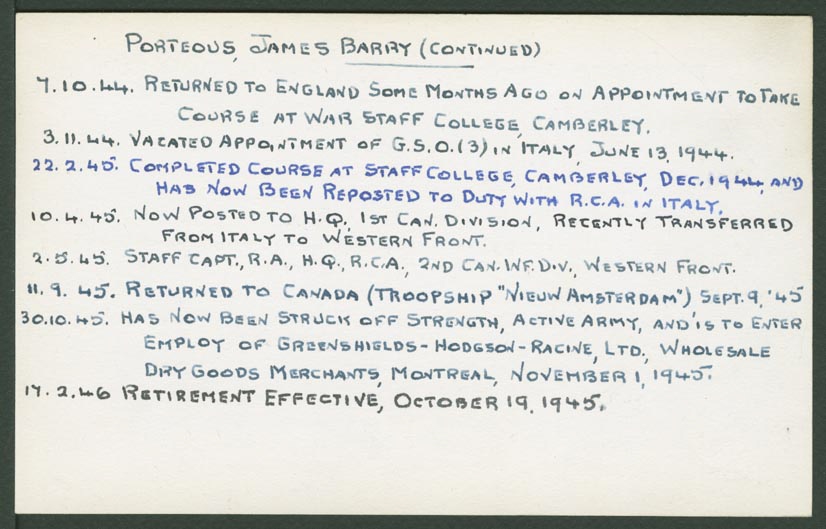 PORTEOUS, JAMES BARRY (CONTINUED)
7.10.44. RETURNED TO ENGLAND SOME MONTHS AGO ON APPOINTMENT TO TAKE
COURSE AT WAR STAFF COLLEGE, CAMBERLEY.
3.11.44. VACATED APPOINTMENT OF G.S.O.(3) IN ITALY, JUNE 13, 1944.
22.2.45. COMPLETED COURSE AT STAFF COLLEGE, CAMBERLEY, DEC. 1944, AND
HAS NOW BEEN REPOSTED TO DUTY WITH R.C.A. IN ITALY.
10.4.45. NOW POSTED TO H.Q. 1ST CAN. DIVISION, RECENTLY TRANSFERRED
FROM ITALY TO WESTERN FRONT.
2.5.45. STAFF CAPT., R.A., H.Q., R.C.A., 2ND CAN. INF. DIV., WESTERN FRONT.
11.9.45. RETURNED TO CANADA (TROOPSHIP "NIEUW AMSTERDAM") SEPT. 9, '45
30.10.45. HAS NOW BEEN STRUCK OFF STRENGTH, ACTIVE ARMY, AND IS TO ENTER
EMPLOY OF GREENSHIELDS-HODGSON-RACINE, LTD., WHOLESALE
DRY GOODS MERCHANTS, MONTREAL, NOVEMBER 1, 1945.
17.2.46 RETIREMENT EFFECTIVE, OCTOBER 19, 1945.